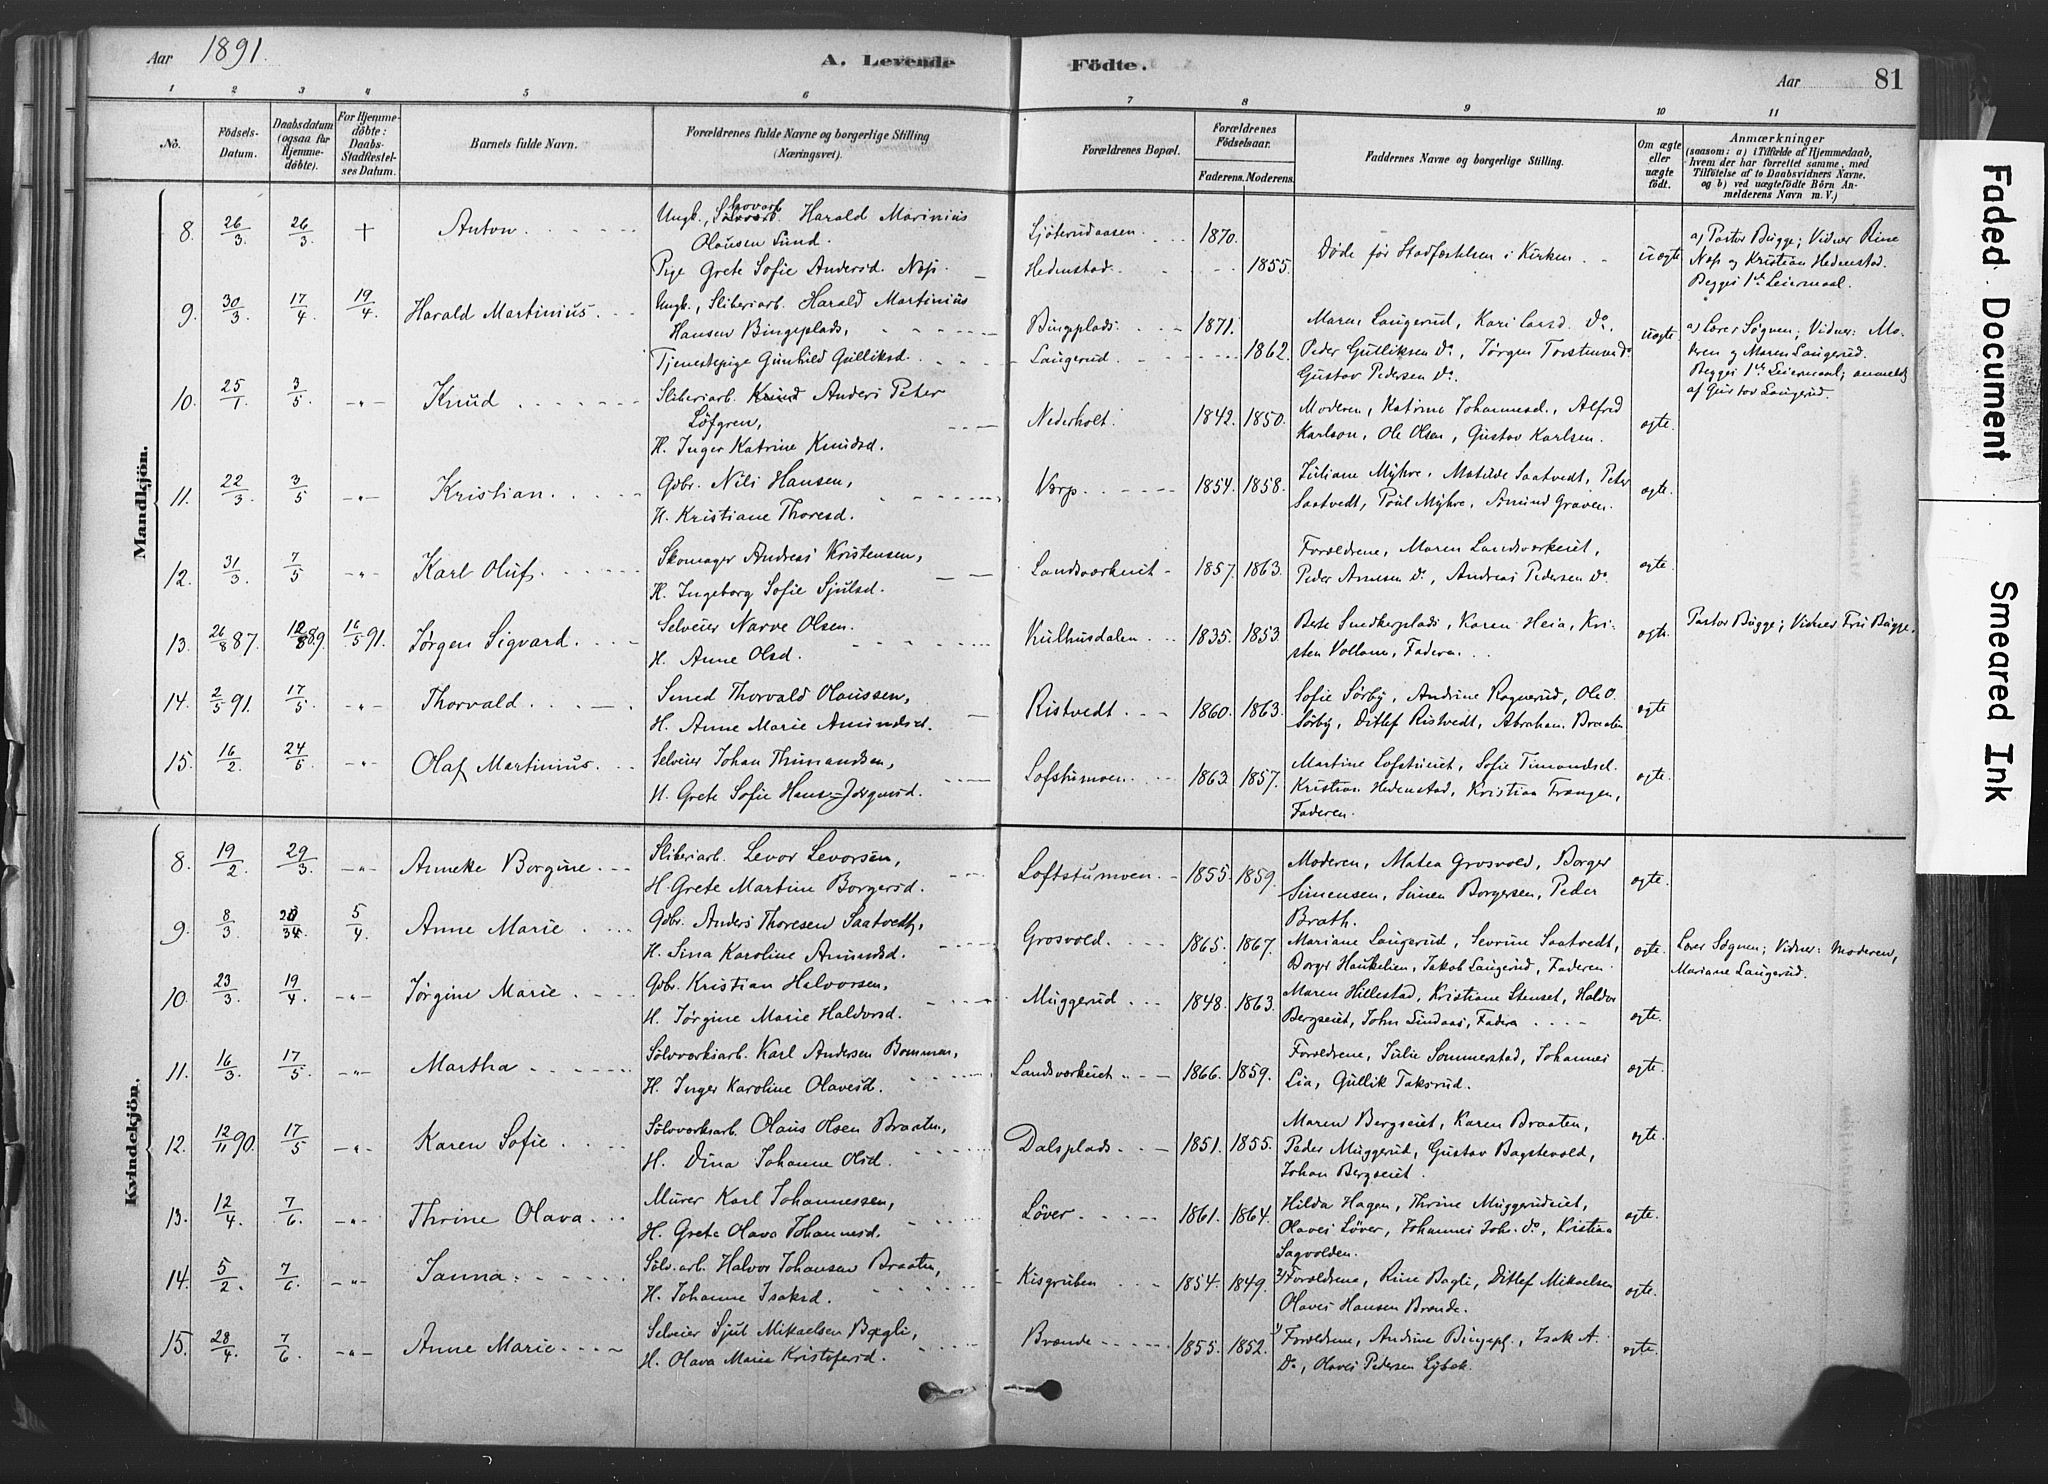 Aar 1891.
A. Levende Födte.
Aar 81
1 2 3 4 5 6 7 8 9 10 11
No.
Födsels-Datum.
Daabsdatum (ogsaa for Hjemmedöbte).
For Hjemmedöbte: Daabs-Stadfæstelses Datum.
Barnets fulde Navn.
Forældrenes fulde Navne og borgerlige Stilling (Næringsvei).
Forældrenes Bopæl.
Forældrenes Födselsaar.
Faderens. Moderens.
Faddernes Navne og borgerlige Stilling.
Om ægte eller uægte födt.
Anmærkninger
(saasom: a) i Tilfælde af Hjemmedaab, hvem der har forrettet samme, med Tilföielse af to Daabsvidners Navne, og b) ved uægtefödte Börn Anmelderens Navn m. V.)
Mandkjön.
8. 26/3 26/3 + Anton
Ungk., Harald Marinius
Olausen Lund.
Pige Grete Sofie Andersd. Næs.
Sjöterudaasen 1870.
Hedenstad 1855.
Døde før Stadfæstelsen i Kirken uægte
a) Pastor Bugge; Vidner Rine
Næs og Kristian Hedenstad.
Begges 1ste Leiermaal.
9. 30/3 17/4 19/4 Harald Martinius.
Ungk., Sliberiarb. Harald Martinius
Hansen Bingeplads,
Tjenestepige Gunhild Gulliksd.
Bingeplads 1871.
Laugerud 1862.
Maren Laugerud, Kari Larsd. Do.
Peder Gulliksen Do, Jørgen Torstensen Do
Gustav Pedersen Do.
uægte
a) Lærer Søgnen; Vidner: Mo-
deren og Maren Laugerud.
Begges 1ste Leiermaal; anmeldt
af Gustav Laugerud.
10. 25/1 3/5 -"- Knud
Sliberiarb. Anders Peter
Löfgren,
H. Inger Katrine Knudsd.
Nederholt 1842. 1850.
Moderen, Katrine Johannesd., Alfred
Karlson, Ole Olsen, Gustav Karlsen.
ægte.
11. 22/3 3/5 -"- Kristian
Gdbr. Nils Hansen,
H. Kristiane Thoresd.
Værp 1854. 1858.
Juliane Myhre, Matilde Saatvedt, Peter
Saatvedt, Poul Myhre, Amund Graven.
ægte.
12. 31/3 7/5 -"- Karl Oluf.
Skomager Andreas Kristensen,
H. Ingeborg Sofie Sjulsd.
Landsværkeiet 1857. 1863.
Forældrene, Maren Landsværkeiet,
Peder Do, Andreas Pedersen Do.
ægte.
13. 26/8 87. 89. 16/5 91. Jørgen Sigvard.
Selveier Narve Olsen.
H. Anne Olsd.
Kulhusdalen 1835. 1853
Berte Snedkerplads, Karen Heia, Kri-
sten Vollane, Faderen.
ægte.
Pastor Bugge; Vidner Fru Bugge.
14. 2/5 91. 17/5 -"- Thorvald
Smed Thorvald Olaussen,
H. Anne Marie Amundsd.
Ristvedt 1860. 1863.
Sofie Sørby, Andrine Ragnerud, Ole O.
Sørby, Ditlef Ristvedt, Abraham Braaten
ægte
15. 16/2 24/5 -"- Olaf Martinius.
Selveier Johan Thimandsen,
H. Grete Sofie Hans-Jørgensd.
Lofstumoen 1863. 1857.
Martine Lofstueiet, Sofie Timandsd.
Kristian Hedenstad, Kristian Trangen,
Faderen.
ægte
Kvindekjön.
8. 19/2 29/3 -"- Anneke Borgine
Sliberiarb. Levor Levorsen,
H. Grete Martine Borgersd.
Loftstumoen 1855. 1859.
Moderen, Matea Grosvold, Borger
Simensen, Simen Borgersen, Peder
Brath.
ægte.
9. 8/3 5/4 Anne Marie
Gdbr. Anders Thoresen Saatvedt,
H. Sina Karoline Amundsd.
Grosvold. 1865. 1867.
Mariane Laugerud, Sevrine Saatvedt,
Borger Haukelien, Jakob Laugerud, Faderen.
ægte.
Lærer Søgnen; Vidner: Moderen,
Mariane Laugerud.
10. 23/3 19/4 -"- Jørgine Marie
Gdbr. Kristian Halvorsen,
H. Jørgine Marie Haldorsd.
Muggerud 1848. 1863.
Maren Hillestad, Kristiane Stenset, Haldor
Bergseiet, John Lindaas, Fadern
ægte.
11. 16/3 17/5 -"- Martha
Sölvværksarb. Karl Andersen Bommen,
H. Inger Karoline Olavesd.
Landsværkeiet 1866. 1859.
Forældrene, Julie Sommerstad, Johannes
Lia, Gullik Taksrud.
ægte.
12. 12/11 90. 17/5 -"- Karen Sofie
Sölvværksarb. Olaus Olsen Braaten,
H. Dina Johanne Olsd.
Dalsplads 1851. 1855.
Maren Bergseiet, Karen Braaten,
Peder Muggerud, Gustav Bagstevold,
Johan Bergseiet.
ægte.
13. 12/4 7/6 -"- Thrine Olava
Murer Karl Johannessen,
H. Grete Olava Johannesd.
Löver 1861. 1864.
Hilda Hagen, Thrine Muggerudeiet,
Olaves Löver, Johannes Joh. Do, Kristian
Sagvolden.
ægte.
14. 5/2 7/6 -"- Janna
Sölv.arb. Halvor Johansen Braaten,
H. Johanne Isaksd.
Kisgruben 1854. 1849.
2) Forældrene, Rine Bægli, Ditlef Mikaelsen
Olaves Hansen Brænde.
ægte.
15. 28/4 7/6 -"- Anne Marie
Selveier Sjul Mikaelsen Bægli,
H. Olava Maria Kristofersd.
Brænde 1855. 1852.
1) Forældrene, Andrine Bingepl., Isak A.
Do, Olaves Pedersen Lybæk.
ægte.
Faded Document
Smeared Ink